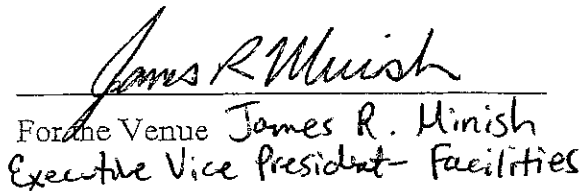 James R Minish
For the Venue James R. Minish
Executive Vice President - Facilities